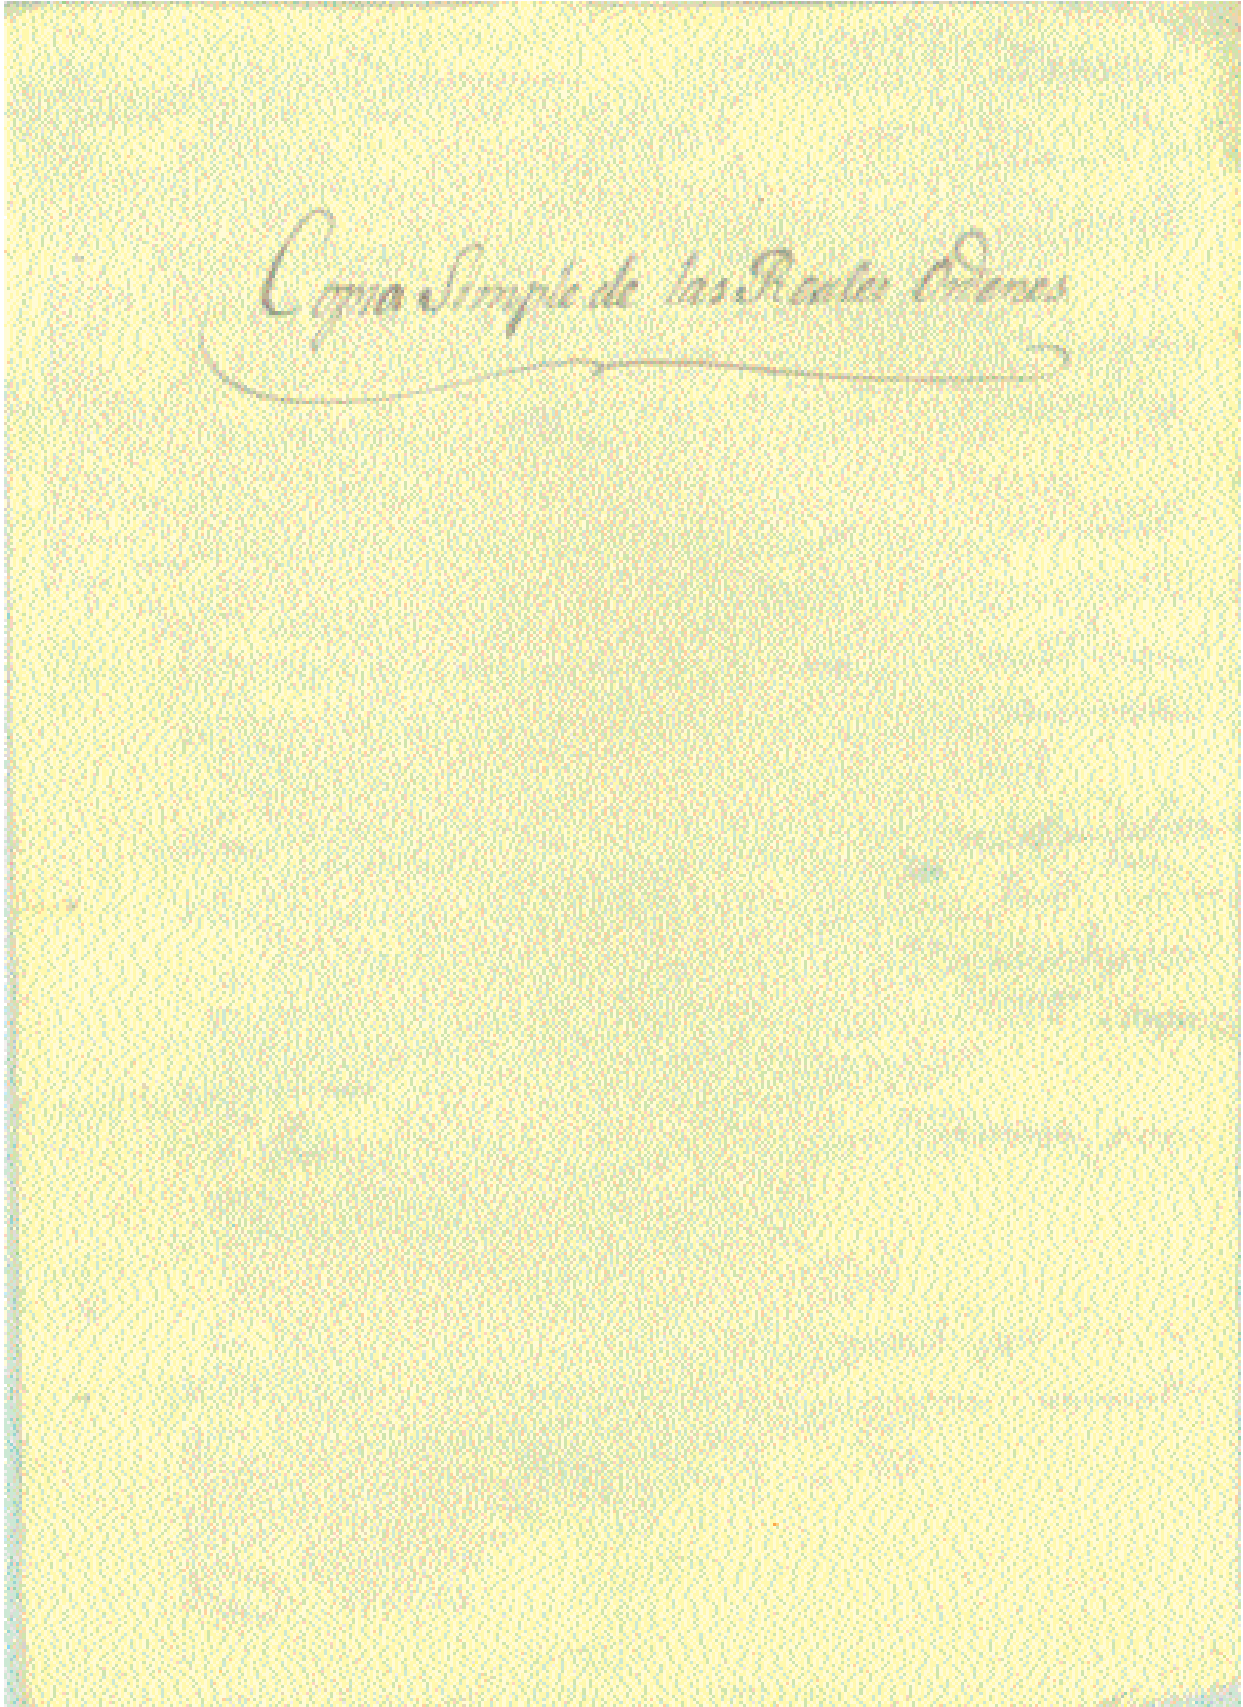 Copia Simple de las Reales Ordenes